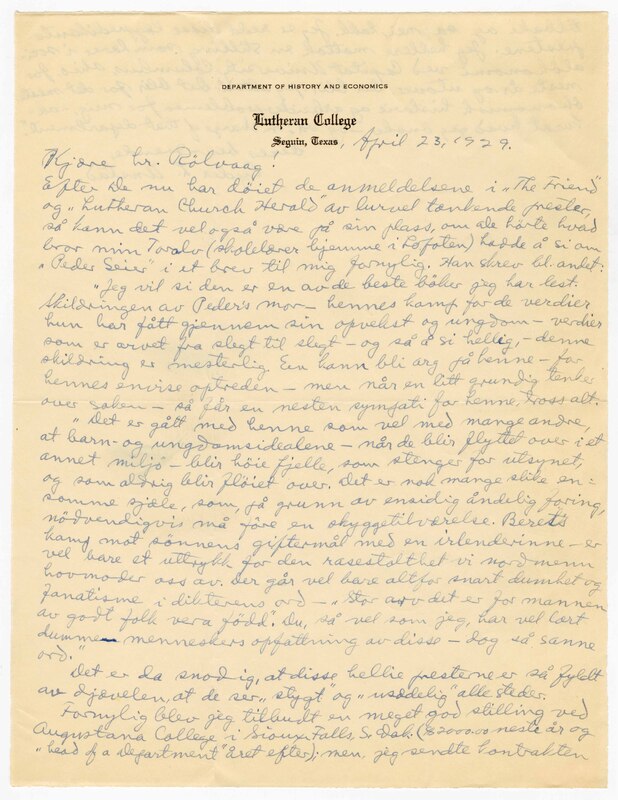 DEPARTMENT OF HISTORY AND ECONOMICS
Lutheran College
Seguin, Texas, April 23, 1929.
Kjære hr. Rölvaag!
Efter De nu har döiet de anmeldelsene i "The Friend"
og "Lutheran Church Herald" av lurvel tænkende prester,
så kann det vel også være på sin plass, om de hörte hvad
bror min Toralv (skolelærer hjemme i Lofoten) hadde å si om
"Peder Seier" i et brev til mig fornylig. Han skrev bl. andet:
"Jeg vil si den er en av de beste böker jeg har lest.
Skildringen av Peder's mor – hennes kamp for de verdier
hun har fått gjennem sin opvekst og ungdom – verdier
som er arvet fra slegt til slegt – og så å si hellig, – denne
skildring er mesterlig. En kann bli arg på henne – for
hennes envise optreden – men når en litt grundig tenker
over saken – så får en nesten sympati for henne tross alt.
"Det er gått med henne som vel med mange andre,
at barn- og ungdomsidealene – når de blir flyttet over i et
annet miljö – blir höie fjelle, som stenger for utsynet,
og som aldrig blir flöiet over. Det er nok mange slike en=
somme sjæle, som, på grunn av ensidig åndelig foring,
nödvendigvis må före en skyggetilværelse. Berets
kamp mot sönnens giftermål med en irlenderinne – er
vel bare et uttrykk for den rasestolthet vi nordmenn
hovmoder oss av. Der går vel bare altfor snart dumhet og
fanatisme i dikterens ord – "Stor arv det er for mannen
av godt folk vera född". Du, så vel som jeg, har vel lært
dumme menneskers opfattning av disse – dog så sanne
ord."
Det er da snodig, at disse hellie presterne er så fyldt
av djævelen, at de ser "stygt" og "usædelig" alle steder.
Fornylig blev jeg tilbudt en meget god stilling ved
Augustana College i Sioux Falls, S. Dak. ($2000.00 neste år og
"head of a Department" året efter); men jeg sendte kontrakten